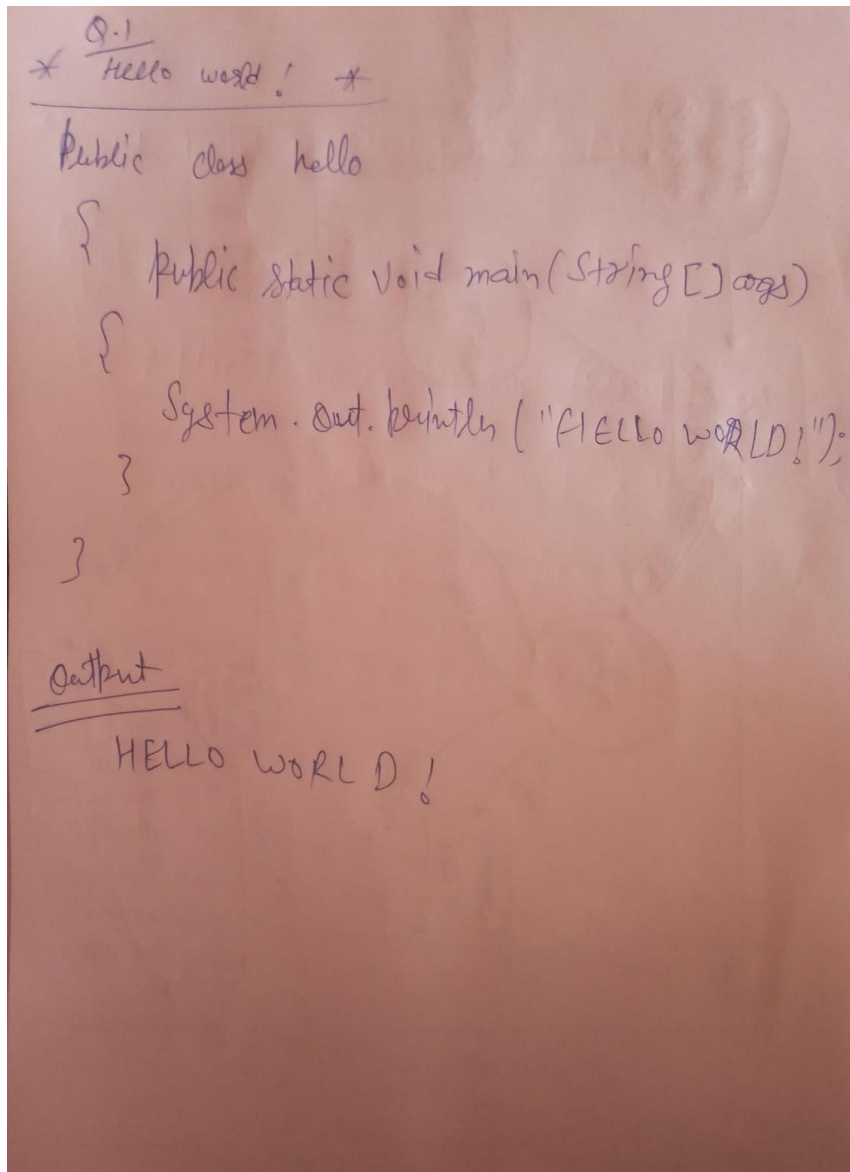 Q.1
* Hello world! *
Public class hello
{
public static void main(String[] args)
{
System.out.println("HELLO WORLD!");
}
}
Output
HELLO WORLD!